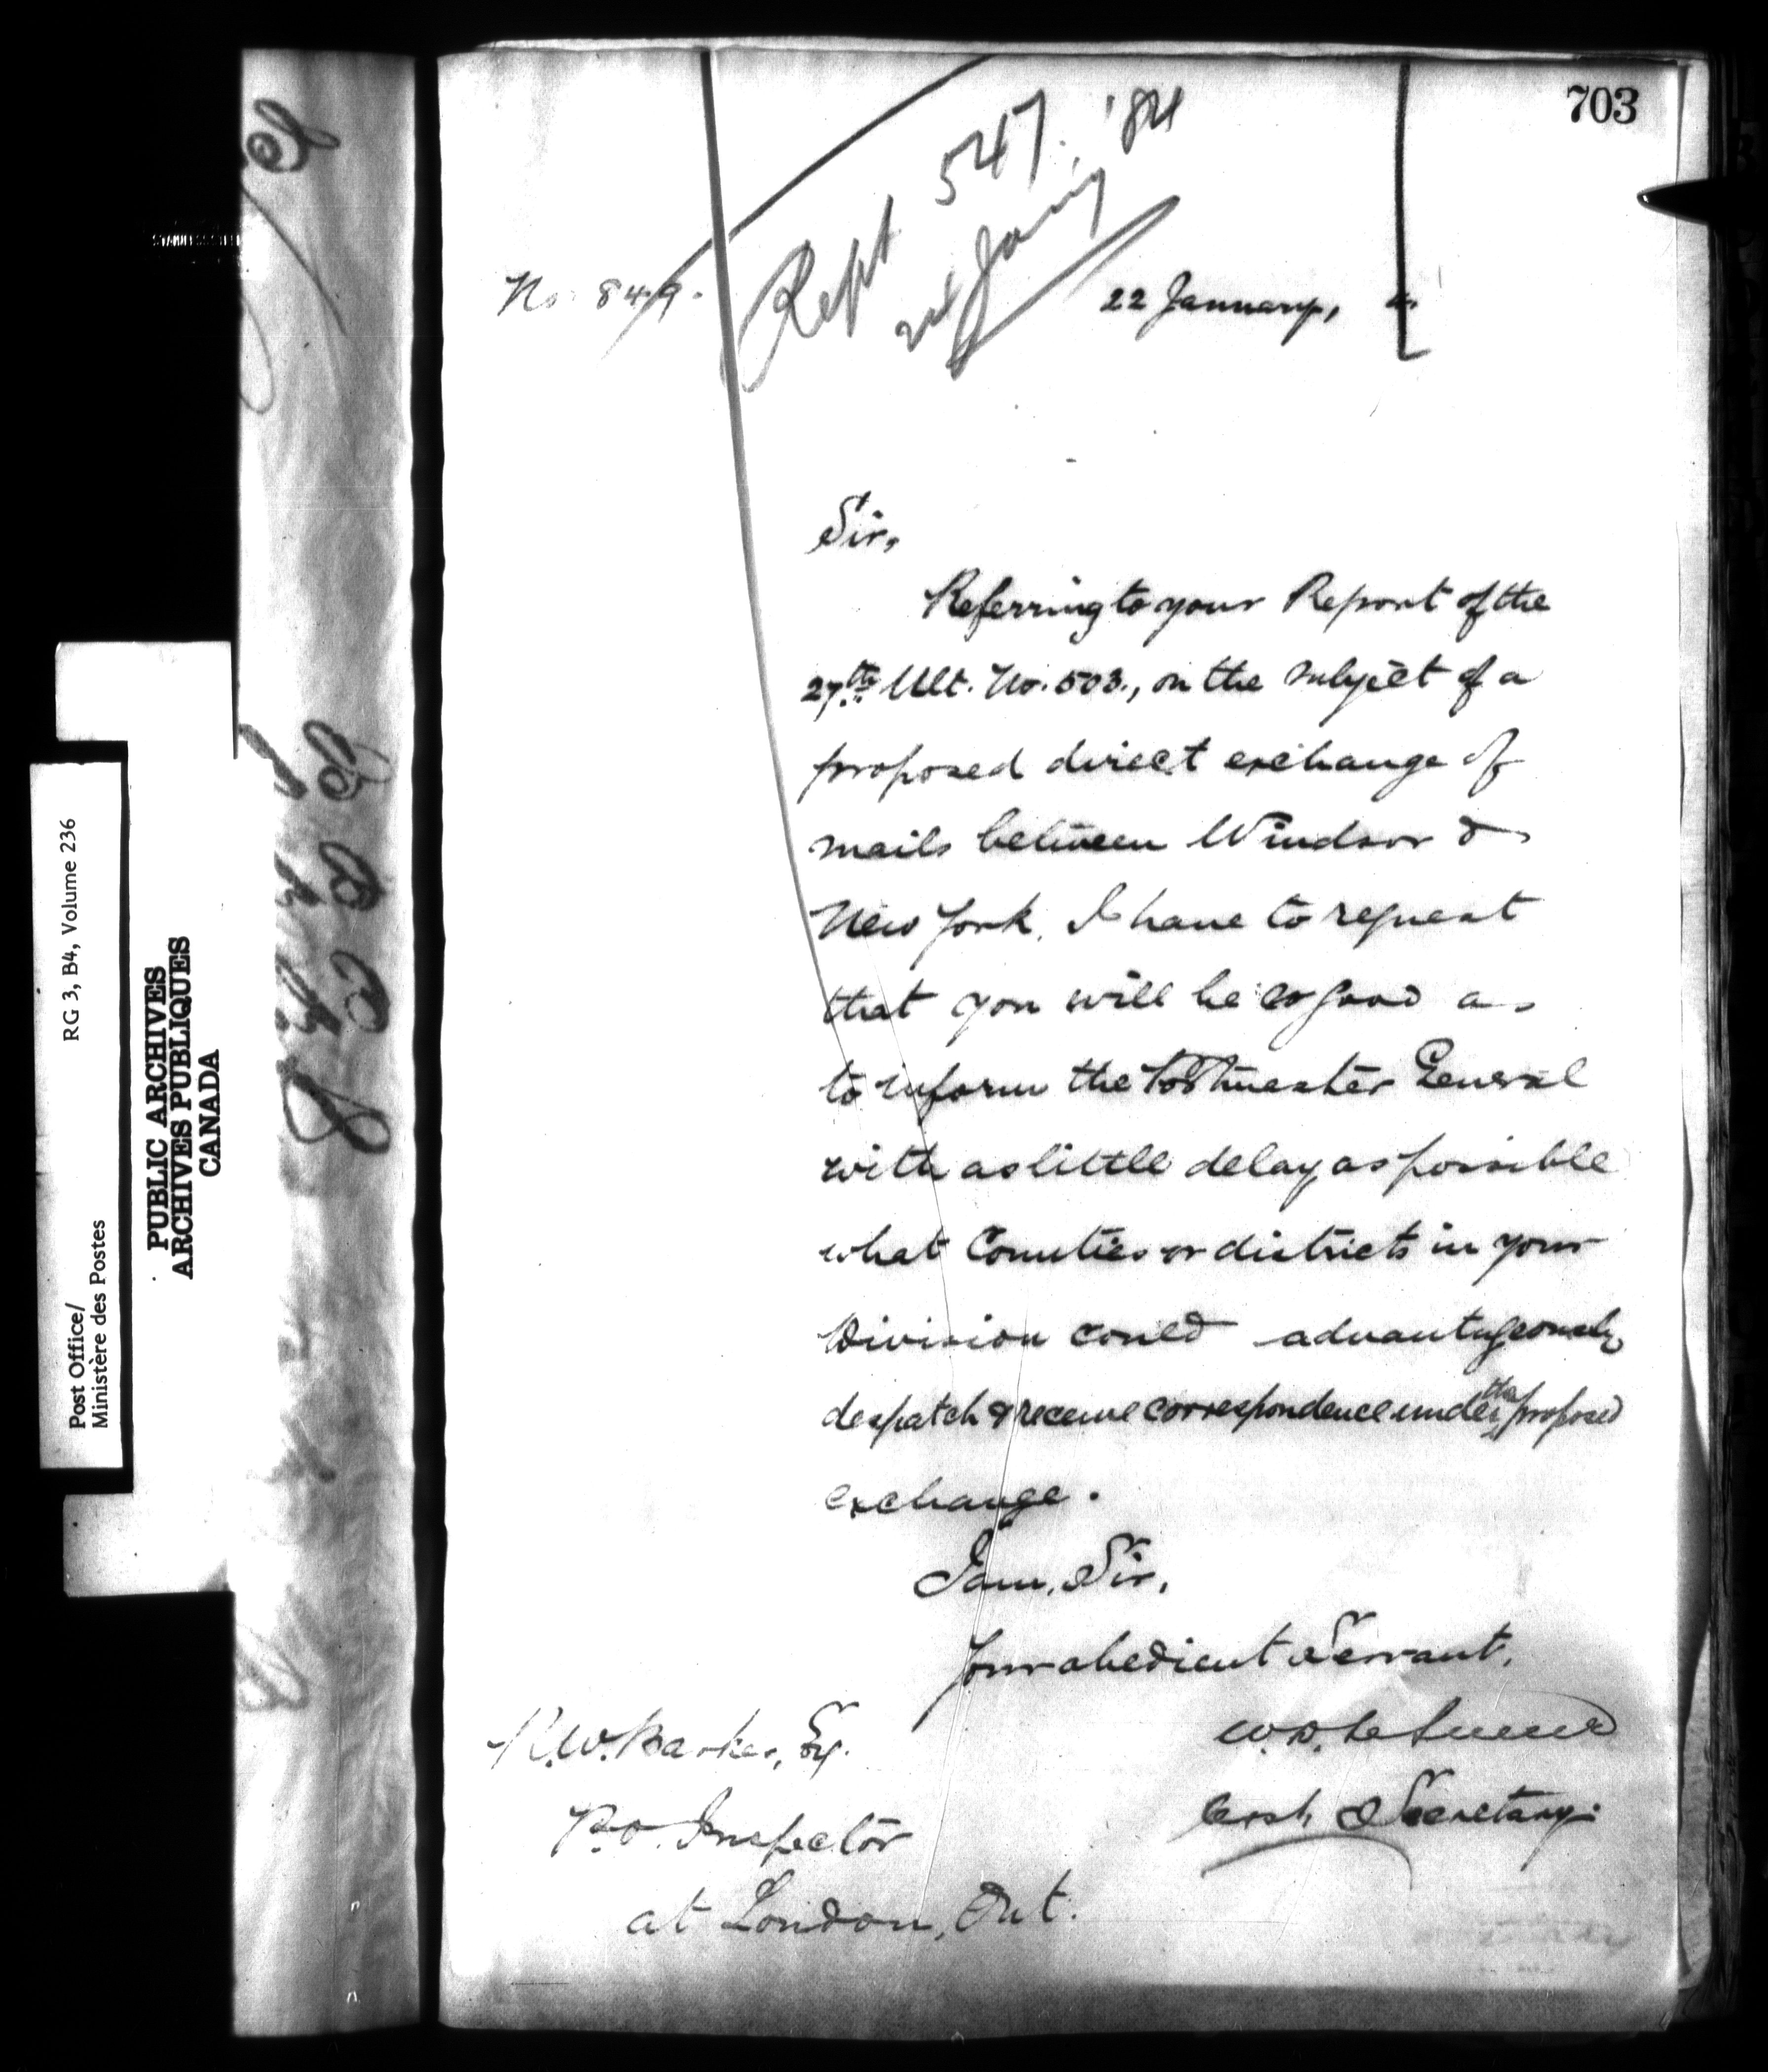 703
Rept 547.
24 Jany '84
No 849.
22 January, 4.
Sir,
Referring to your Report of the
27th Ult. No. 503., on the subject of a
proposed direct exchange of
mails between Windsor &
New York, I have to request
that you will be so good as
to inform the Postmaster General
with as little delay as possible
what Counties or districts in your
Division could advantageously
despatch & receive correspondence under the proposed
exchange.
I am, Sir,
Your obedient Servant,
W. D. LeSueur
Secretary.
R. W. Barker, Esq.
P.O. Inspector
at London, Ont.
Post Office/
Ministère des Postes
RG 3, B4, Volume 236
PUBLIC ARCHIVES
ARCHIVES PUBLIQUES
CANADA